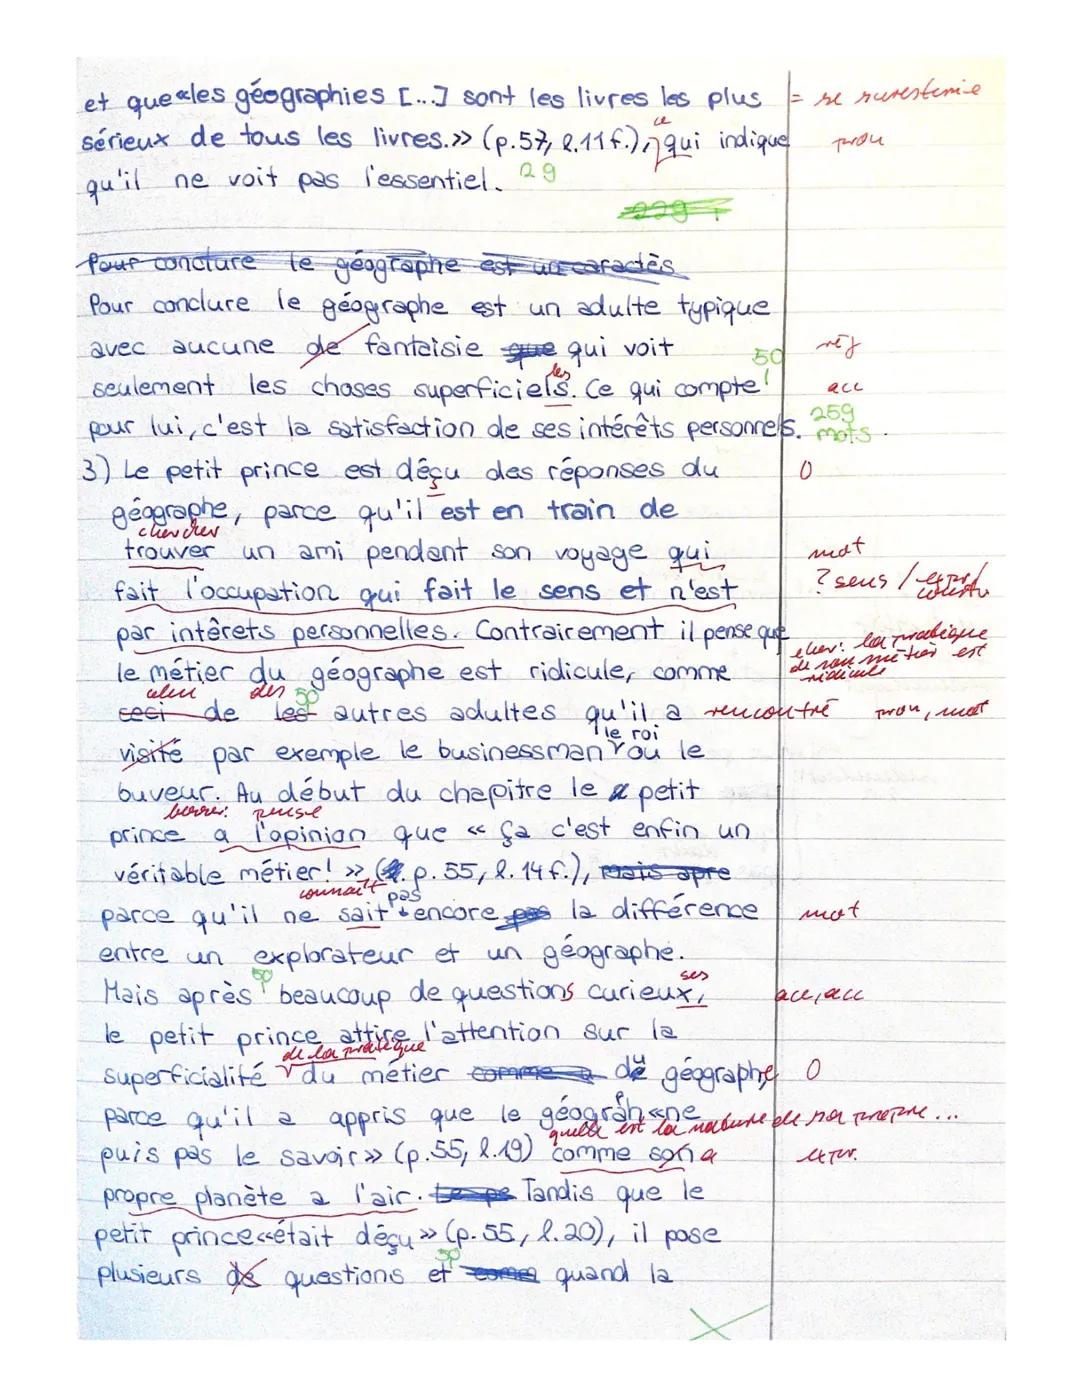 et que «les géographies [...] sont les livres les plus = se surestimie
sérieux de tous les livres.» (p.57, l.11f.), ce qui indique pron
qu'il ne voit pas l'essentiel. 29
229
Pour conclure le géographe est un caractès
Pour conclure le géographe est un adulte typique
avec aucune de fantaisie que qui voit rég
seulement les choses superficiels. les Ce qui compte 50 acc
pour lui, c'est la satisfaction de ses intérêts personnels. 259 mots
3) Le petit prince est déçu des réponses du O
géographe, parce qu'il est en train de
chercher
trouver un ami pendant son voyage qui mot
fait l'occupation qui fait le sens et n'est ? sens / expr/
par intêrets personnelles. Contrairement il pense que
cher: la pratique
de son métier est
ridicule
le métier du géographe est ridicule, comme
celui des 50
ceci de les autres adultes qu'il a rencontré pron, mot
le roi
visité par exemple le businessman ou le
buveur. Au début du chapitre le petit
pense
prince a l'opinion que « ça c'est enfin un
véritable métier! » (p. 55, l. 14 f.), mais apre
connaît pas
parce qu'il ne sait encore pas la différence mot
entre un explorateur et un géographe.
50 ses
Mais après beaucoup de questions curieux, acc, acc
le petit prince attire l'attention sur la
de la pratique
superficialité du métier comme du géographe O
parce qu'il a appris que le géographe «ne
quelle est la nature de sa propre ...
puis pas le savoir» (p.55, l.19) comme son a expr.
propre planète a l'air. Tandis que le
petit prince «était déçu» (p.55, l.20), il pose
50
plusieurs de questions et quand la